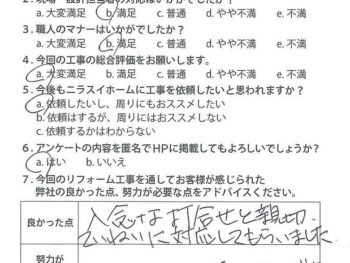 2. 現場・設計担当者の対応はいかがでしたか？
a. 大変満足 b. 満足 c. 普通 d. やや不満 e. 不満
3. 職人のマナーはいかがでしたか？
a. 大変満足 b. 満足 c. 普通 d. やや不満 e. 不満
4. 今回の工事の総合評価をお願いします。
a. 大変満足 b. 満足 c. 普通 d. やや不満 e. 不満
5. 今後もニライスイホームに工事を依頼したいと思われますか？
a. 依頼したいし、周りにもおススメしたい
b. 依頼はするが、周りにはおススメしない
c. 依頼するかはわからない
6. アンケートの内容を匿名でHPに掲載してもよろしいでしょうか？
a. はい b. いいえ
7. 今回のリフォーム工事を通してお客様が感じられた
弊社の良かった点、努力が必要な点をアドバイスください。
良かった点
入念な打合せと親切、
ていねいに対応してもらいました
努力が